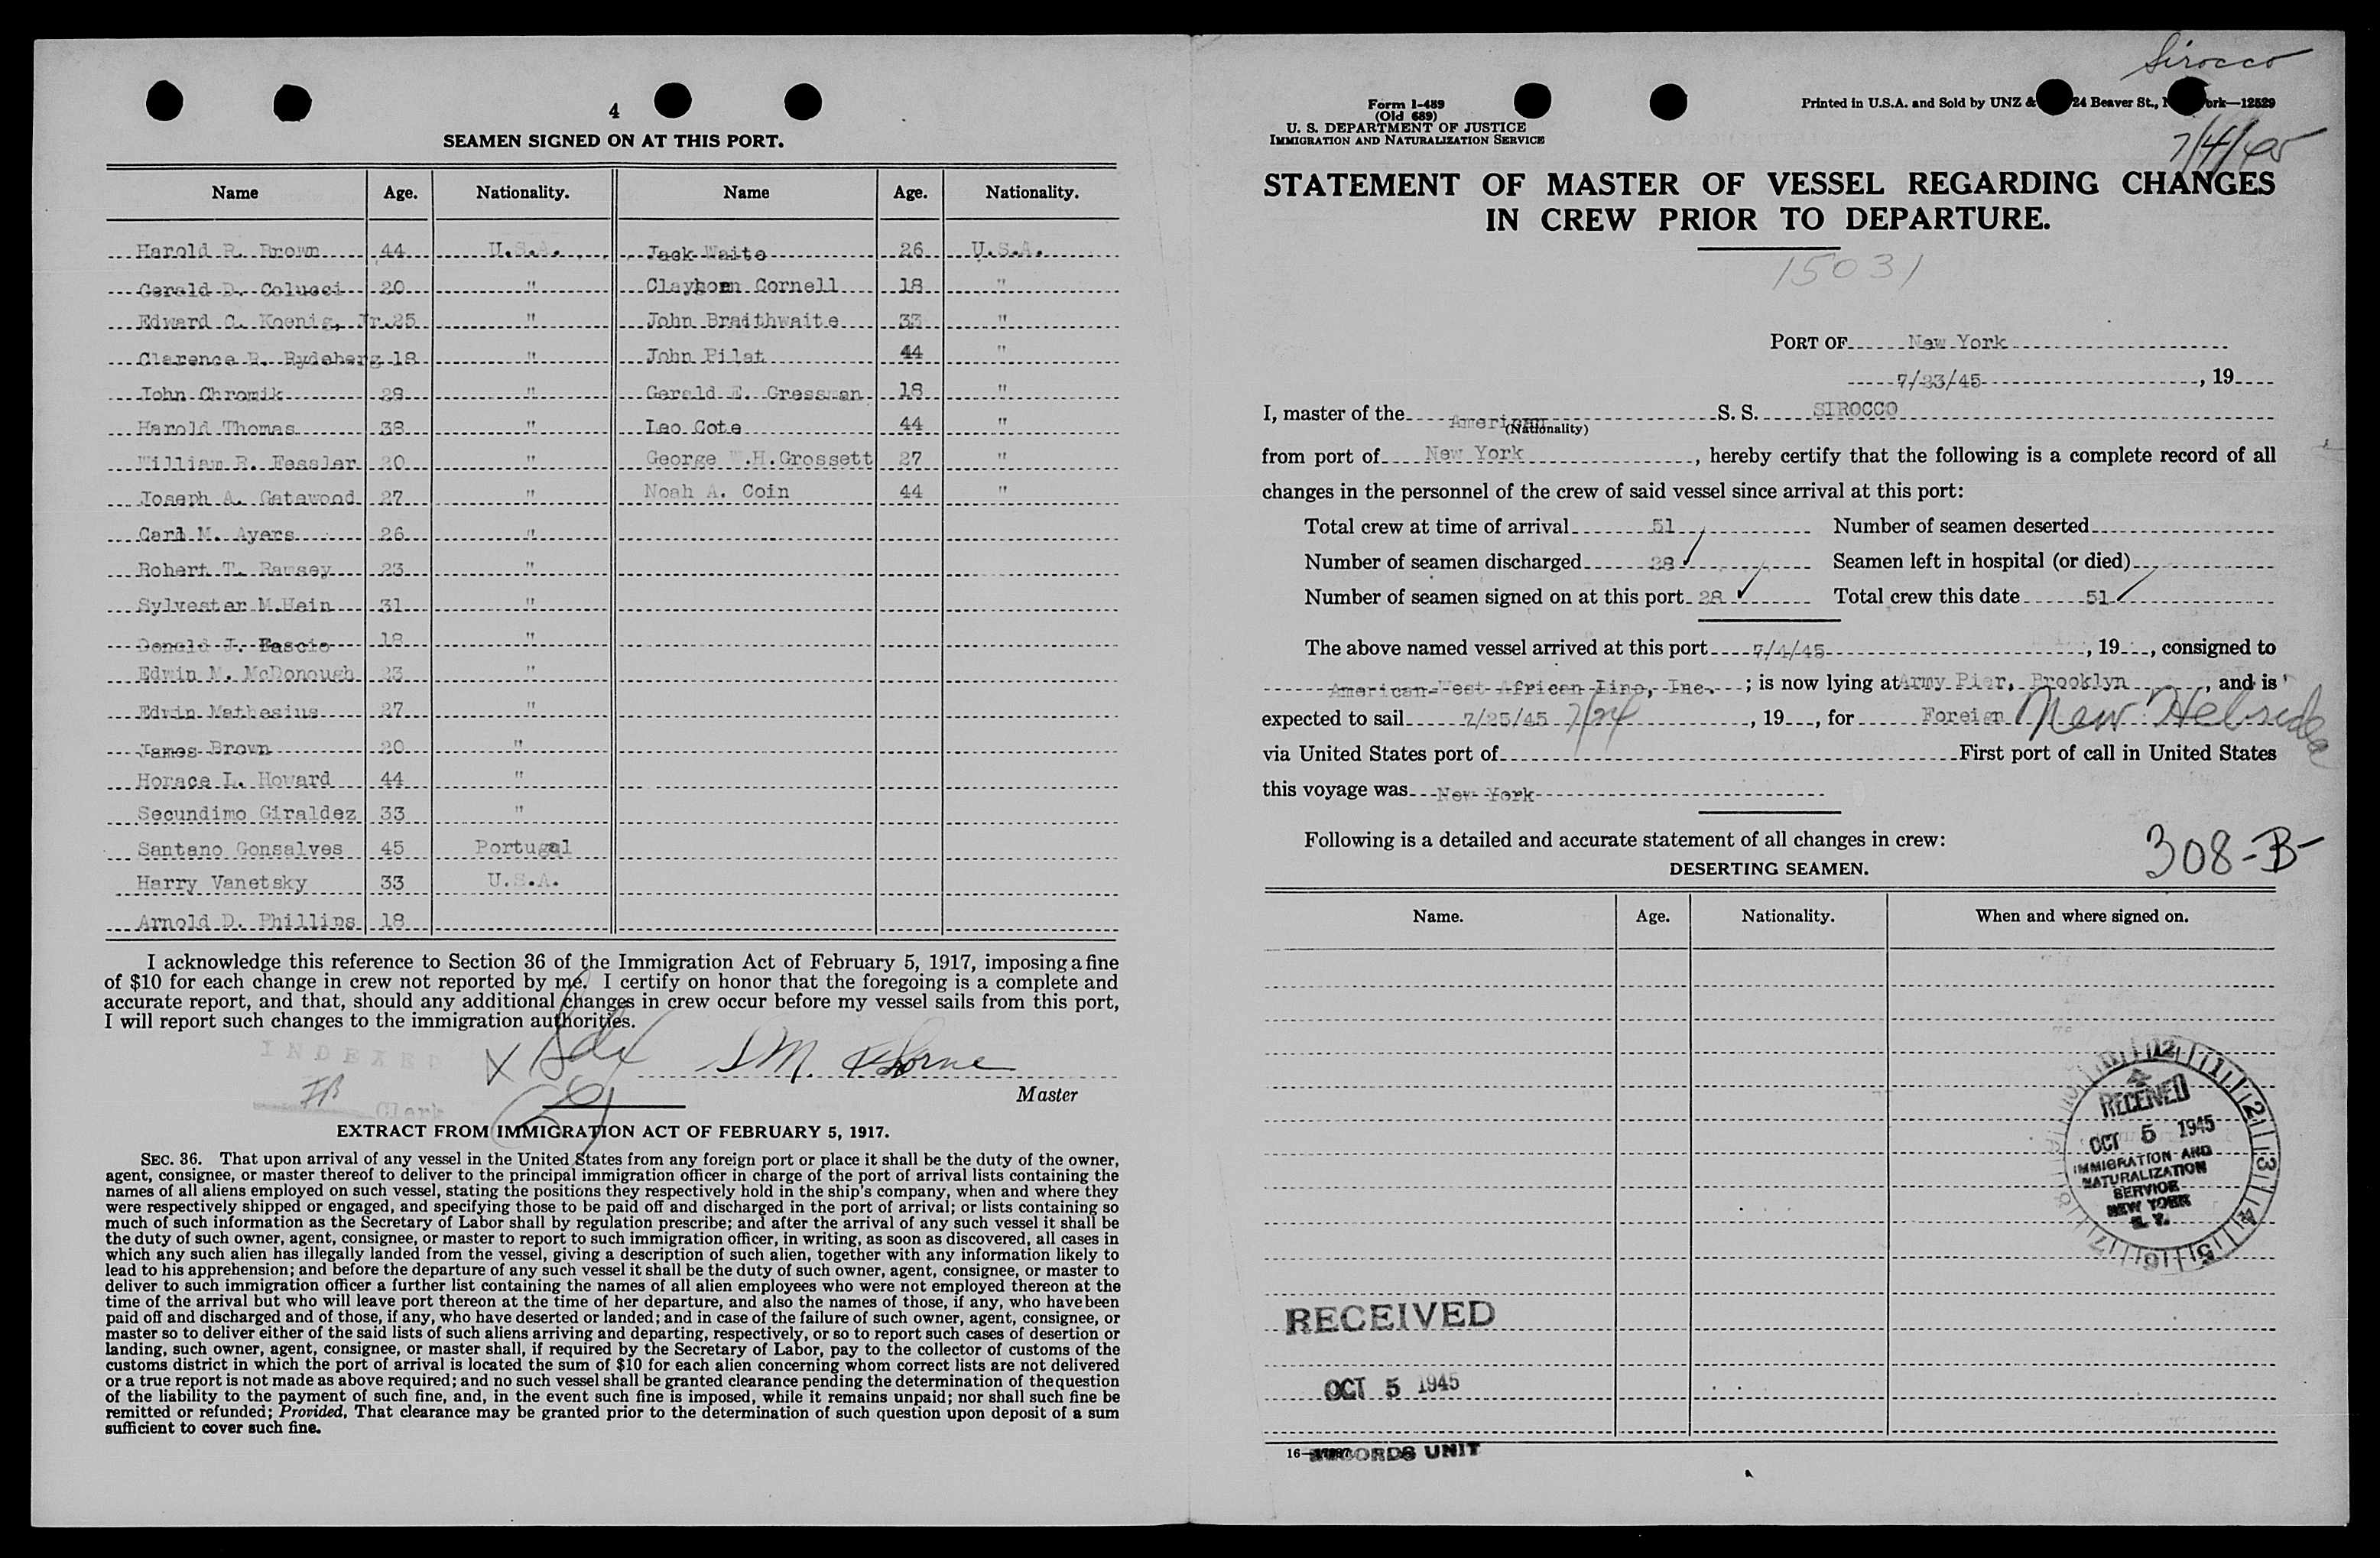 4
SEAMEN SIGNED ON AT THIS PORT.
Name Age. Nationality. Name Age. Nationality.
Harold R. Brown 44 U.S.A. Jack Waite 26 U.S.A.
Gerald D. Colucci 20 " Clayborn Cornell 18 "
Edward C. Koenig, Jr. 25 " John Braithwaite 33 "
Clarence R. Rydeberg 18 " John Pilat 44 "
John Chromik 28 " Gerald E. Gressman 18 "
Harold Thomas 38 " Leo Cote 44 "
William R. Fessler 20 " George W.H.Grossett 27 "
Joseph A. Gatewood 27 " Noah A. Coin 44 "
Carl M. Ayers 26 "
Robert T. Ramsey 23 "
Sylvester M.Hein 31 "
Donald J. Fascio 18 "
Edwin M. McDonough 23 "
Edwin Mathesius 27 "
James Brown 20 "
Horace L. Howard 44 "
Secundimo Giraldez 33 "
Santano Gonsalves 45 Portugal
Harry Vanetsky 33 U.S.A.
Arnold D. Phillips 18
I acknowledge this reference to Section 36 of the Immigration Act of February 5, 1917, imposing a fine
of $10 for each change in crew not reported by me. I certify on honor that the foregoing is a complete and
accurate report, and that, should any additional changes in crew occur before my vessel sails from this port,
I will report such changes to the immigration authorities.
INDEXED
X
Clerk
Master
EXTRACT FROM IMMIGRATION ACT OF FEBRUARY 5, 1917.
SEC. 36. That upon arrival of any vessel in the United States from any foreign port or place it shall be the duty of the owner,
agent, consignee, or master thereof to deliver to the principal immigration officer in charge of the port of arrival lists containing the
names of all aliens employed on such vessel, stating the positions they respectively hold in the ship's company, when and where they
were respectively shipped or engaged, and specifying those to be paid off and discharged in the port of arrival; or lists containing so
much of such information as the Secretary of Labor shall by regulation prescribe; and after the arrival of any such vessel it shall be
the duty of such owner, agent, consignee, or master to report to such immigration officer, in writing, as soon as discovered, all cases in
which any such alien has illegally landed from the vessel, giving a description of such alien, together with any information likely to
lead to his apprehension; and before the departure of any such vessel it shall be the duty of such owner, agent, consignee, or master to
deliver to such immigration officer a further list containing the names of all alien employees who were not employed thereon at the
time of the arrival but who will leave port thereon at the time of her departure, and also the names of those, if any, who have been
paid off and discharged and of those, if any, who have deserted or landed; and in case of the failure of such owner, agent, consignee, or
master so to deliver either of the said lists of such aliens arriving and departing, respectively, or so to report such cases of desertion or
landing, such owner, agent, consignee, or master shall, if required by the Secretary of Labor, pay to the collector of customs of the
customs district in which the port of arrival is located the sum of $10 for each alien concerning whom correct lists are not delivered
or a true report is not made as above required; and no such vessel shall be granted clearance pending the determination of the question
of the liability to the payment of such fine, and, in the event such fine is imposed, while it remains unpaid; nor shall such fine be
remitted or refunded; Provided, That clearance may be granted prior to the determination of such question upon deposit of a sum
sufficient to cover such fine.
Sirocco
Form I-489
(Old 689)
U. S. DEPARTMENT OF JUSTICE
IMMIGRATION AND NATURALIZATION SERVICE
Printed in U.S.A. and Sold by UNZ & 24 Beaver St., ork—12529
7/4/45
STATEMENT OF MASTER OF VESSEL REGARDING CHANGES
IN CREW PRIOR TO DEPARTURE.
15031
PORT OF New York
7/23/45, 19
I, master of the American S. S. SIROCCO
(Nationality)
from port of New York, hereby certify that the following is a complete record of all
changes in the personnel of the crew of said vessel since arrival at this port:
Total crew at time of arrival 51 Number of seamen deserted
Number of seamen discharged 28 Seamen left in hospital (or died)
Number of seamen signed on at this port 28 Total crew this date 51
The above named vessel arrived at this port 7/4/45, 19, consigned to
American-West African Line, Inc. ; is now lying at Army Pier, Brooklyn, and is
expected to sail 7/25/45 7/24, 19, for Foreign New Hebrides
via United States port of First port of call in United States
this voyage was New York
Following is a detailed and accurate statement of all changes in crew:
308-B-
DESERTING SEAMEN.
Name. Age. Nationality. When and where signed on.
RECEIVED
OCT 5 1945
IMMIGRATION AND
NATURALIZATION
SERVICE
NEW YORK
N. Y.
RECEIVED
OCT 5 1945
16—
RECORDS UNIT